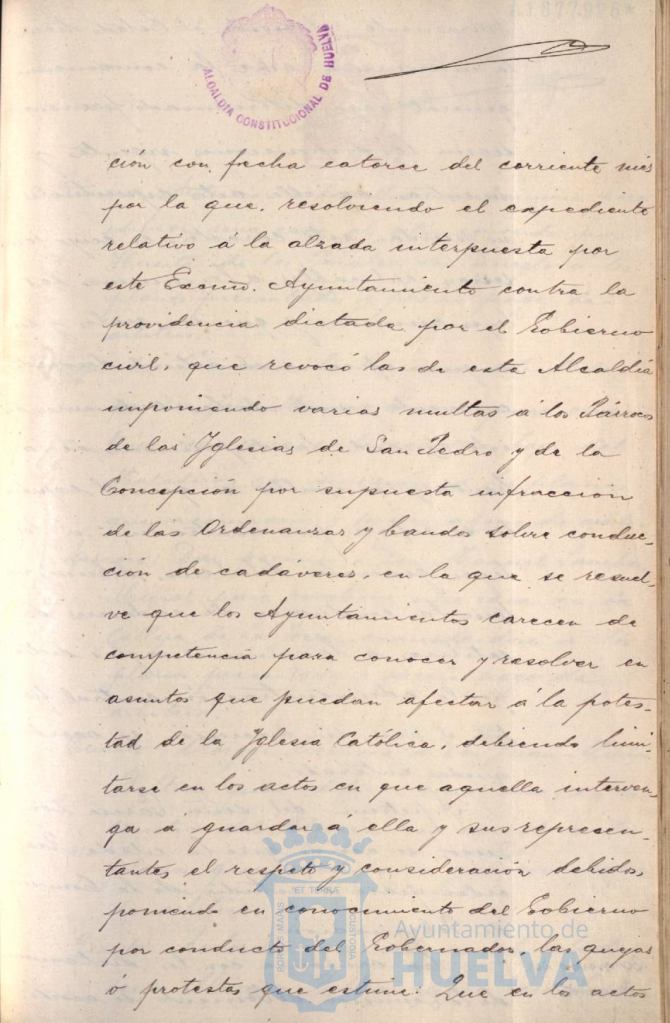 ALCALDIA CONSTITUCIONAL DE HUELVA
ción con fecha catorce del corriente mes
por la que, resolviendo el expediente
relativo á la alzada interpuesta por
este Excmo. Ayuntamiento contra la
providencia dictada por el Gobierno
civil, que revocó las de esta Alcaldía
imponiendo varias multas á los Párrocos
de las Yglesias de San Pedro y de la
Concepción por supuesta infracción
de las Ordenanzas y bandos sobre conduc-
ción de cadáveres, en la que se resuel-
ve que los Ayuntamientos carecen de
competencia para conocer y resolver en
asuntos que puedan afectar á la potes-
tad de la Yglesia Católica, debiendo limi-
tarse en los actos en que aquella interven-
ga á guardar á ella y sus represen-
tantes el respeto y consideración debidos,
poniendo en conocimiento del Gobierno
por conducto del Gobernador, las quejas
ó protestas que estime: Que en los actos
PORTUS MARIS ET TERRE CUSTODIA
Ayuntamiento de
HUELVA